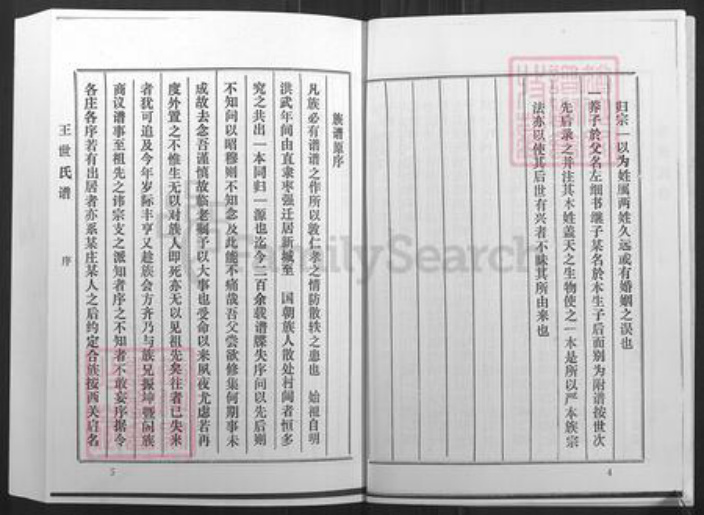 归宗一以为姓属两姓久远或有婚姻之误也
一养子於父名左细书继子某名於本生子后而别为附谱按世次
先后录之并注其本姓盖天之生物使之一本是所以严本族宗
法亦以使其后世有兴者不昧其所由来也
4
族谱原序
凡族必有谱谱之作所以敦仁孝之情防散轶之患也 始祖自明
洪武年间由直隶枣强迁居新城至 国朝族人散处村闾者恒多
究之共出一本同归一源也迄今二百余载谱牒失序问以先后则
不知问以昭穆则不知念及此能不痛哉吾父尝欲修集何期事未
成故去念吾谨慎故临老嘱予以大事也受命以来夙夜尤虑若再
度外置之不惟生无以对族人即死亦无以见祖先矣往者已失来
者犹可追及今年岁际丰亨又趁族会方齐乃与族兄振坤暨阖族
商议谱事至祖先之讳宗支之派知者序之不知者不敢妄序据令
各庄各序若有出居者亦系某庄某人之后约定合族按西关启名
王世氏谱
序
5
FamilySearch